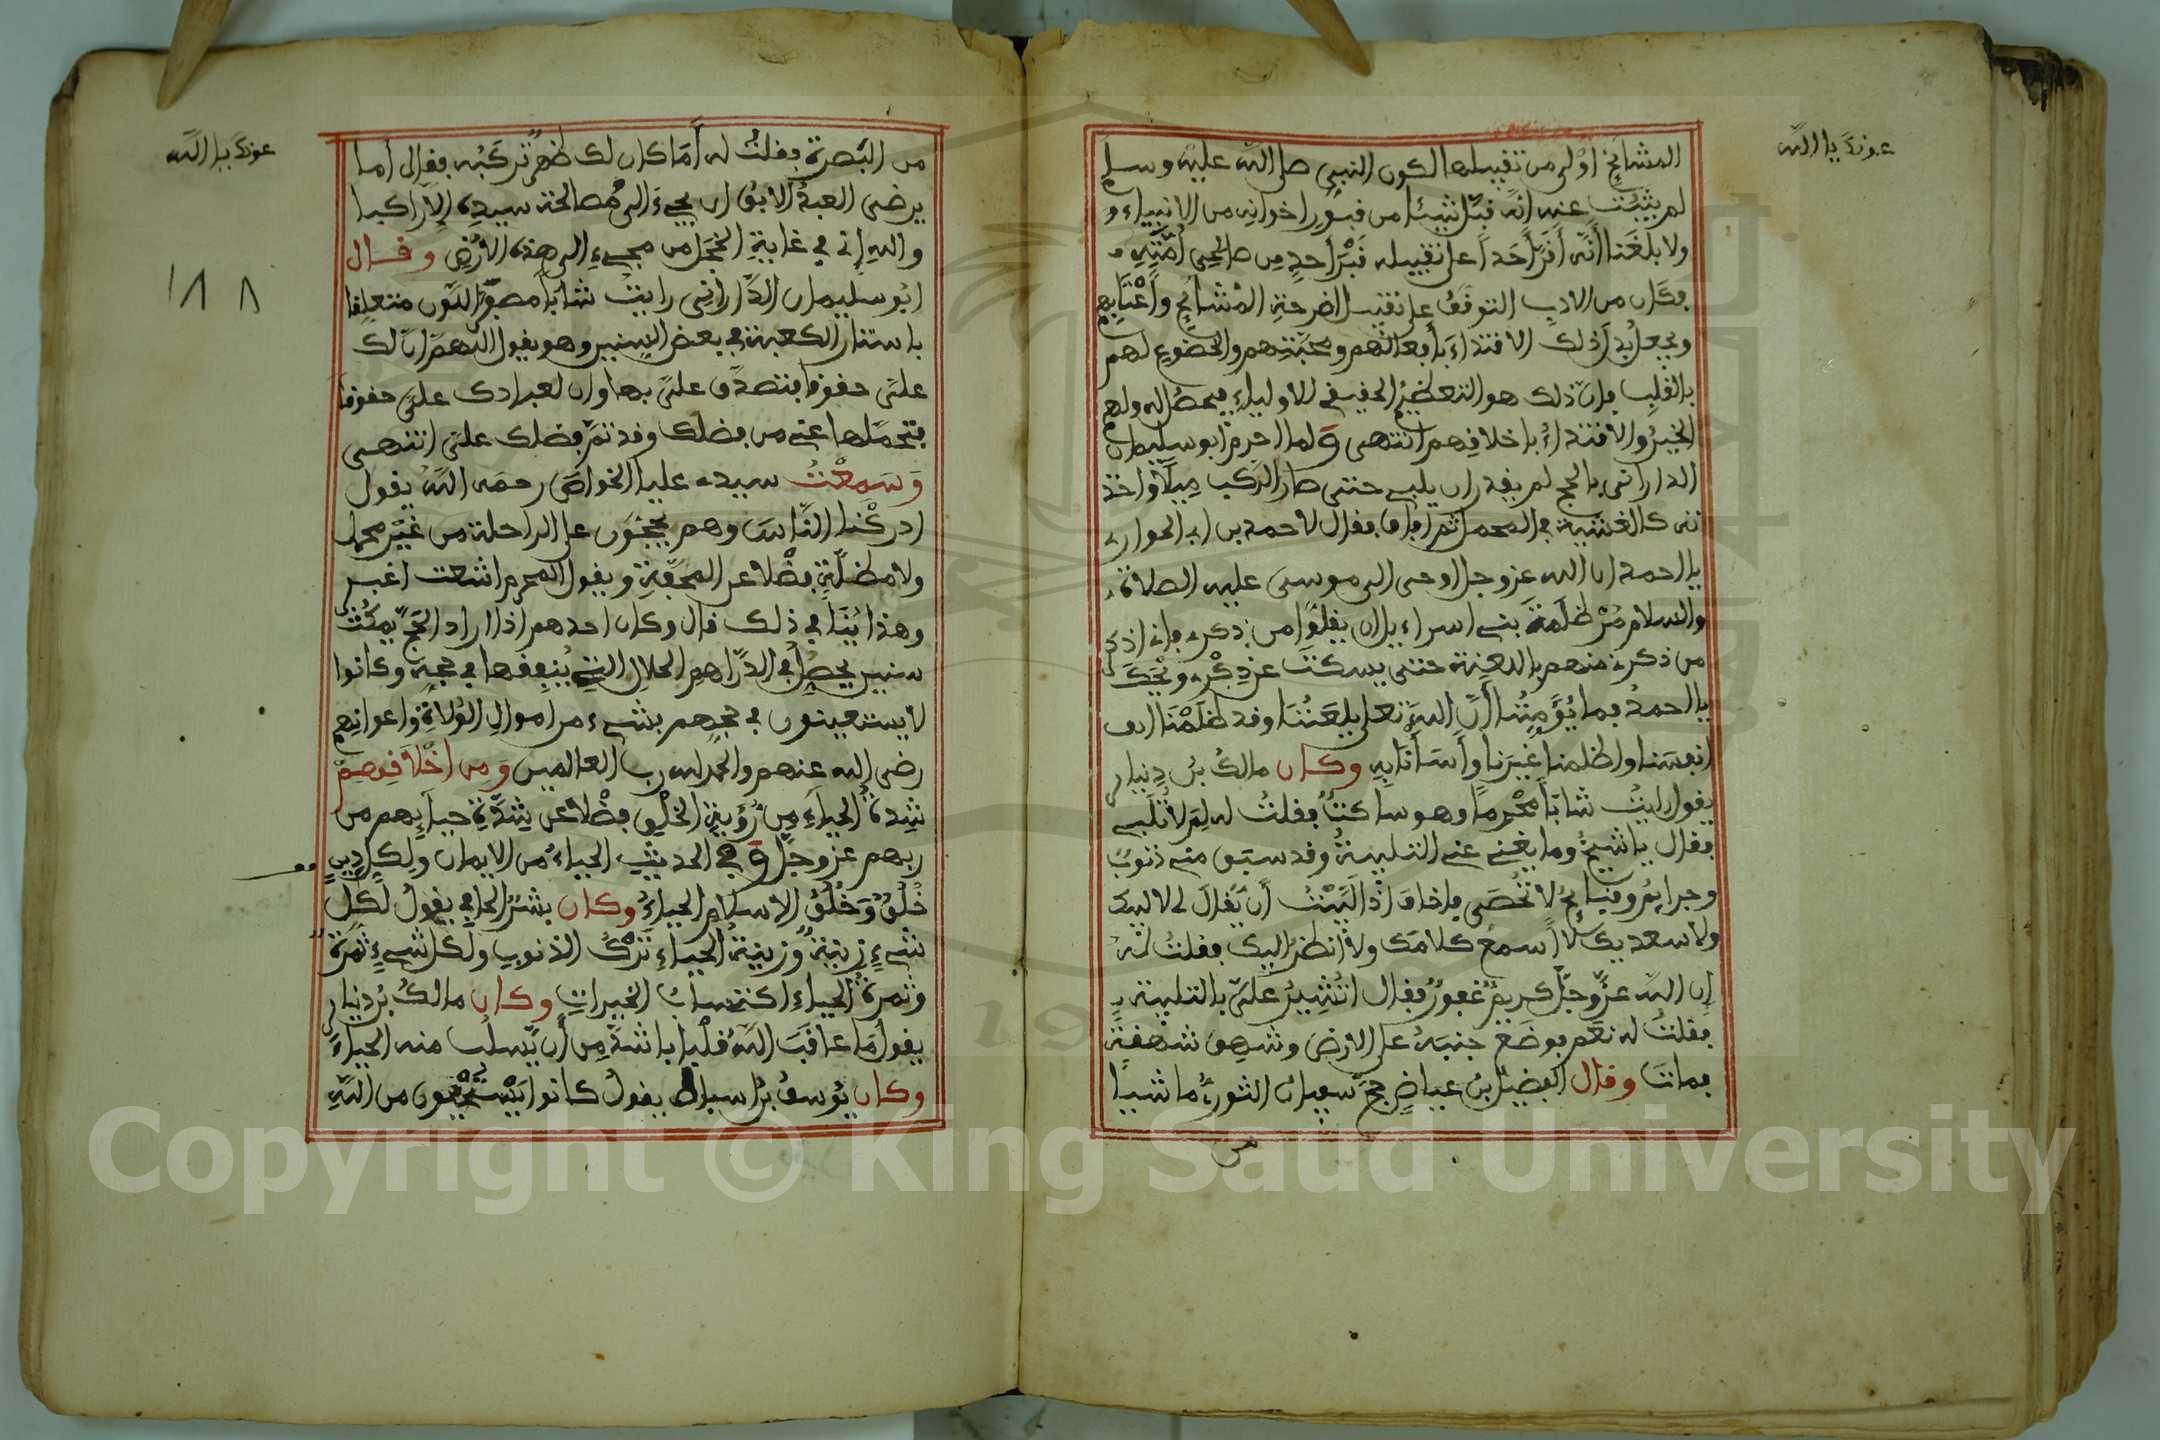 عونك يا الله
المشايخ اولى من تقبيلها لكون النبي صلى الله عليه وسلم
لم يثبت عنه انه قبل شيئا من قبور اخوانه من الانبياء و
ولا بلغنا أنه أقر أحدا على تقبيله قبر أحد من صالحي أمته
فكان من الادب التوقف على تقبيل اضرحة المشايخ وأعتابهم
ويجعل بدل ذلك الاقتداء بأفعالهم ومحبتهم والخضوع لهم
بالقلب فإن ذلك هو التعظيم الحقيقي للاولياء فيحصل له ولهم
الخير والاقتداء باخلافهم انتهى ولما احرم ابو سليمان
الداراني بالحج لم يقدر ان يلبي حتى صار الركب ميلا واخذ
ته كالغشية في المحمل ثم افاق فقال لاحمد بن ابي الحواري
يا احمد ان الله عز وجل اوحى الى موسى عليه الصلاة
والسلام مر ظلمة بني اسراءيل ان يقلوا من ذكري فإني اذكر
من ذكرني منهم باللعنة حتى يسكت عن ذكري ويحك
يا احمد فما يؤمننا أن الله تعلى يلعننا وقد ظلمنا
انفسنا وظلمنا غيرنا وأسأنا به وكان مالك بن دينار
يقول رايت شابا محرما وهو ساكت فقلت له لم لا تلبي
فقال يا شيخ وما يغني عني التلبية وقد سبق مني ذنوب
وجرايم وقبايح لا تحصى فاخاف اذا لبيت أن يقال لي لا لبيك
ولا سعديك لا أسمع كلامك ولا انظر اليك فقلت له
إن الله عز وجل كريم غفور فقال اتشير علي بالتلبية
فقلت له نعم فوضع جنبه على الارض وشهق شهقة
فمات وقال الفضيل بن عياض حج سفيان الثوري ماشيا
من
عونك يا الله
١٨٨
من البصرة فقلت له أما كان لك ظهر تركبه فقال أما
يرضى العبد الابق ان يجيء الى مصالحة سيده إلا راكبا
والله إني في غاية الخجل من مجيءي الى هذه الارض وقال
ابو سليمان الداراني رايت شابا مصفر اللون متعلقا
باستار الكعبة في بعض السنين وهو يقول اللهم ان لك
علي حقوقا فتصدق علي بها وان لعبادك علي حقوقا
فتحملها عني من فضلك وقد تم فضلك علي انتهى
وسمعت سيدي عليا الخواص رحمه الله يقول
ادركنا الناس وهم يحجون على الراحلة من غير محمل
ولا مظلة فضلا عن المحفة ويقول المحرم اشعت اغبر
وهذا ينافي ذلك قال وكان احدهم اذا اراد الحج يمكث
سنين يحصل في الدراهم الحلال التي ينفقها في حجه وكانوا
لا يستعينون في حجهم بشيء من اموال الولاة واعوانهم
رضي الله عنهم والحمد لله رب العالمين ومن اخلاقهم
شدة الحياء من رؤية الخلق فضلا عن شدة حيايهم من
ربهم عز وجل وفي الحديث الحياء من الايمان ولكل دين
خلق وخلق الاسلام الحياء وكان بشر الحافي يقول لكل
شيء زينة وزينة الحياء ترك الذنوب ولكل شيء ثمرة
وثمرة الحياء اكتساب الخيرات وكان مالك بن دينار
يقول ما عاقب الله قلبا باشد من أن يسلب منه الحياء
وكان يوسف بن اسباط يقول كانوا يستحيون من الله
Copyright © King Saud University